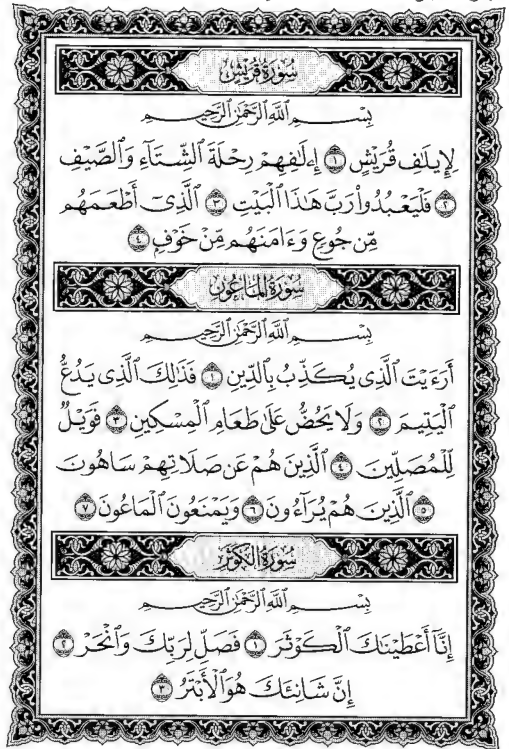 سُورَةُ قُرَيْشٍ
بِسْمِ ٱللَّهِ ٱلرَّحْمَٰنِ ٱلرَّحِيمِ
لِإِيلَٰفِ قُرَيْشٍ ١ إِۦلَٰفِهِمْ رِحْلَةَ ٱلشِّتَآءِ وَٱلصَّيْفِ
٢ فَلْيَعْبُدُوا۟ رَبَّ هَٰذَا ٱلْبَيْتِ ٣ ٱلَّذِىٓ أَطْعَمَهُم
مِّن جُوعٍ وَءَامَنَهُم مِّنْ خَوْفٍۭ ٤
سُورَةُ المَاعُونِ
بِسْمِ ٱللَّهِ ٱلرَّحْمَٰنِ ٱلرَّحِيمِ
أَرَءَيْتَ ٱلَّذِى يُكَذِّبُ بِٱلدِّينِ ١ فَذَٰلِكَ ٱلَّذِى يَدُعُّ
ٱلْيَتِيمَ ٢ وَلَا يَحُضُّ عَلَىٰ طَعَامِ ٱلْمِسْكِينِ ٣ فَوَيْلٌ
لِّلْمُصَلِّينَ ٤ ٱلَّذِينَ هُمْ عَن صَلَاتِهِمْ سَاهُونَ
٥ ٱلَّذِينَ هُمْ يُرَآءُونَ ٦ وَيَمْنَعُونَ ٱلْمَاعُونَ ٧
سُورَةُ الكَوْثَرِ
بِسْمِ ٱللَّهِ ٱلرَّحْمَٰنِ ٱلرَّحِيمِ
إِنَّآ أَعْطَيْنَٰكَ ٱلْكَوْثَرَ ١ فَصَلِّ لِرَبِّكَ وَٱنْحَرْ ٢
إِنَّ شَانِئَكَ هُوَ ٱلْأَبْتَرُ ٣